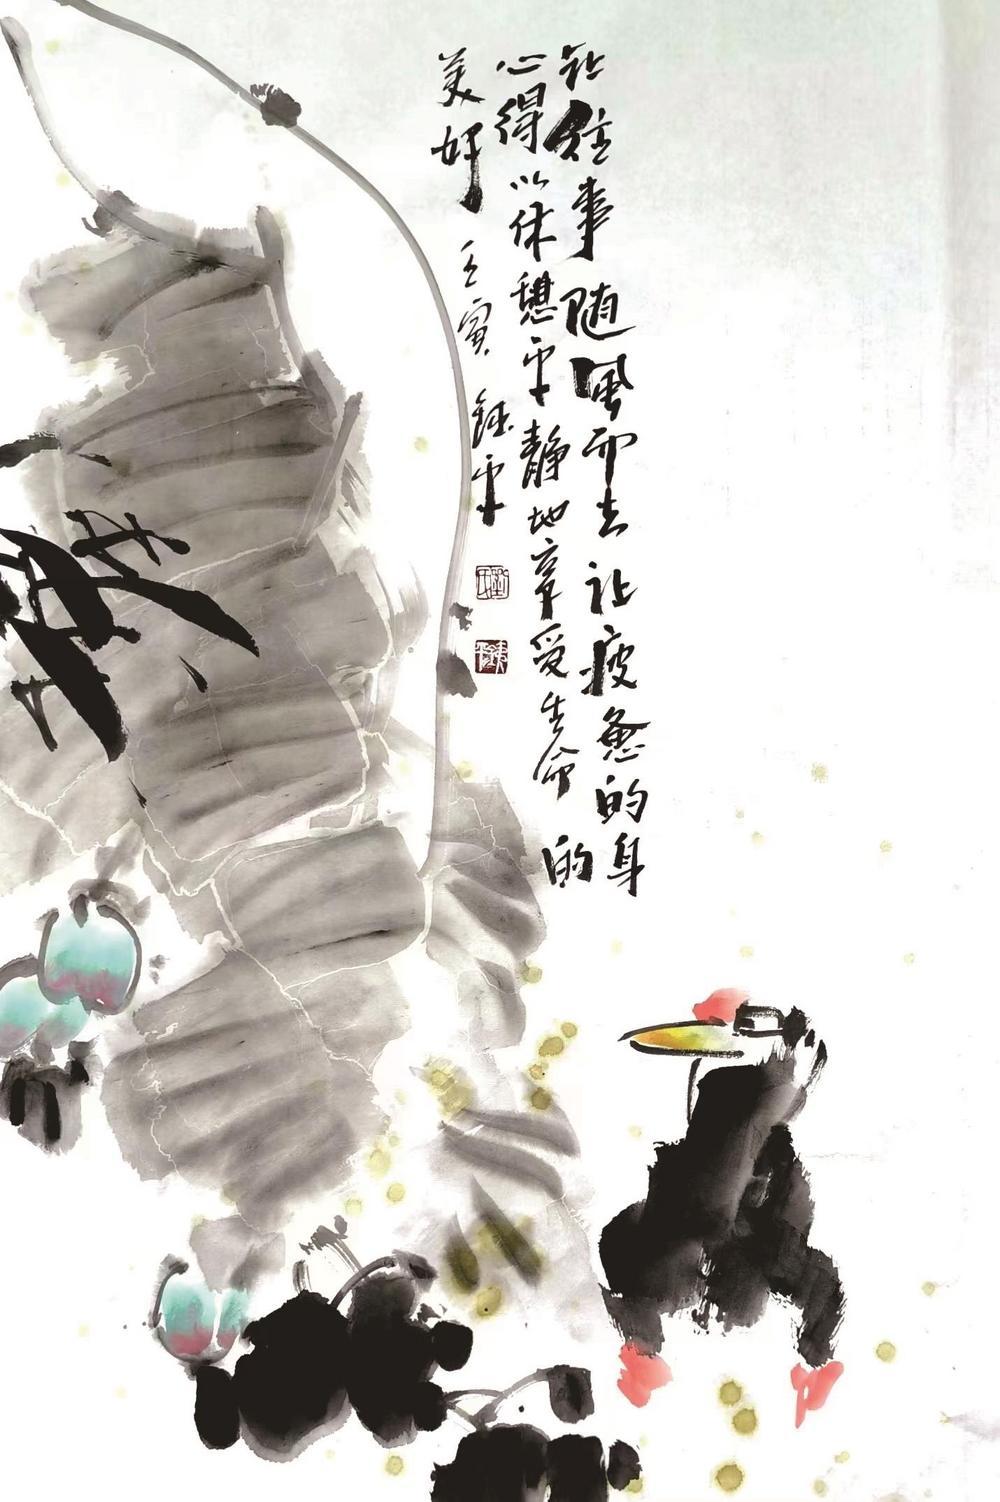 让往事随风而去让疲惫的身
心得以休憩平静地享受生命的
美好 壬寅 钰平